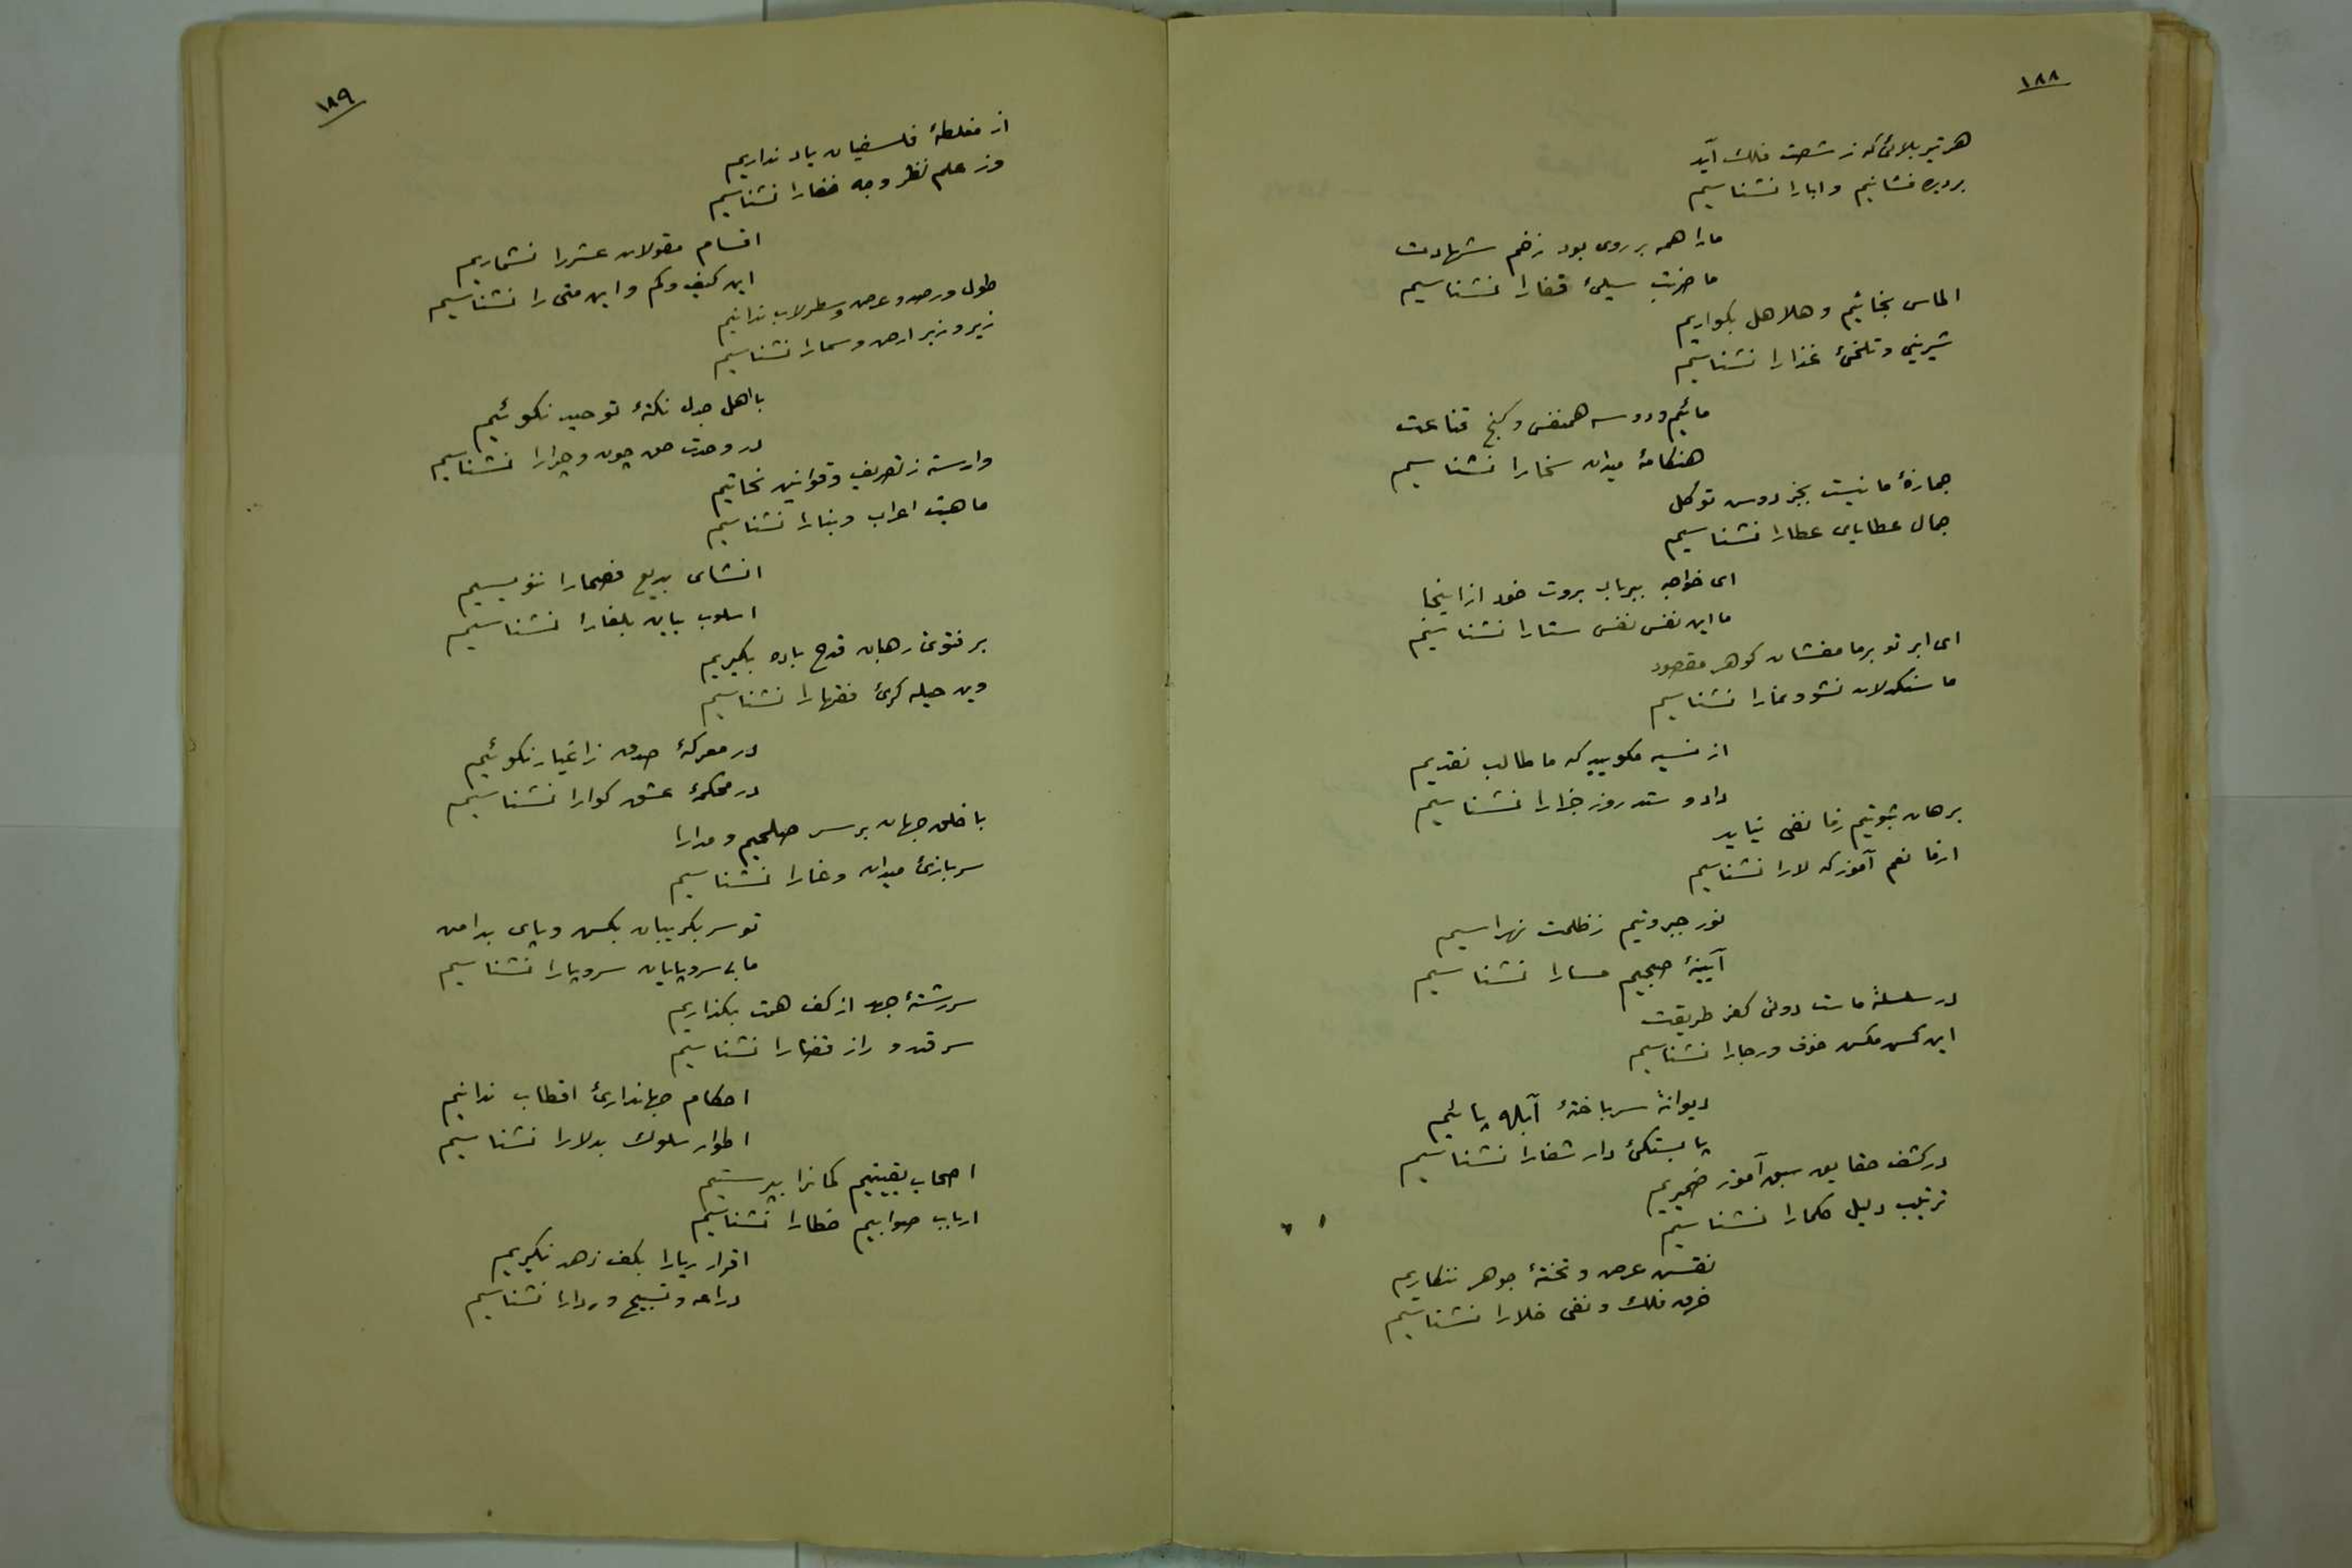 ١٨٨
هر تیر بلائی که ز شصت فلك آید
بر دیده نشانیم و ابا را نشناسیم
ما را همه بر روی بود زخم شهادت
ما ضربت سیلیٔ قفا را نشناسیم
الماس بخائیم و هلاهل بکواریم
شیرینی و تلخیٔ غذا را نشناسیم
مائیم و دو سه همنفس و کنج قناعت
هنکامهٔ میدان سخا را نشناسیم
جمازهٔ ما نیست بجز دوش توکل
جمال عطایای عطا را نشناسیم
ای خواجه ببر باد بروت خود از اینجا
ما این نفس نفس ستا را نشناسیم
ای ابر تو بر ما مفشان کوهر مقصود
ما سنکدلان نشو و نما را نشناسیم
از نسیه مکویید که ما طالب نقدیم
داد و ستد روز جزا را نشناسیم
برهان ثبوتیم ز ما نفی نیاید
از ما نعم آموز که لا را نشناسیم
نور جبروتیم ز ظلمت نهراسیم
آیینهٔ صبحیم مسا را نشناسیم
در سلسلهٔ ماست دوئی کفر طریقت
این کش مکش خوف و رجا را نشناسیم
دیوانهٔ سرباختهٔ آبله پائیم
پابستکیٔ دار شفا را نشناسیم
در کشف حقایق سبق آموز ضمیریم
ترتیب دلیل حکما را نشناسیم
نقش عرض و تختهٔ جوهر ننکاریم
خرق فلك و نفی خلا را نشناسیم
١٨٩
از مغلطهٔ فلسفیان یاد نداریم
وز علم نظر وجه خفا را نشناسیم
اقسام مقولات عشر را نشماریم
این کیف و کم و این متی را نشناسیم
طول و رصد و عرض و سطرلاب ندانیم
زیر و زبر ارض و سما را نشناسیم
با اهل جدل نکتهٔ توحید نکوئیم
در وحدت حق چون و چرا را نشناسیم
وارسته ز تصریف و قوانین نحاتیم
ماهیت اعراب و بنا را نشناسیم
انشای بدیع فصحا را ننویسیم
اسلوب بیان بلغا را نشناسیم
بر فتوی رهبان قدح باده بکیریم
وین حیله کریٔ فقها را نشناسیم
در معرکهٔ صدق ز اغیار نکوئیم
در محکمهٔ عشق کوا را نشناسیم
با خلق جهان بر سر صلحیم و مدارا
سربازیٔ میدان وغا را نشناسیم
تو سر بکریبان بکش و پای بدامن
ما بی سر و پایان سر و پا را نشناسیم
سررشتهٔ جهد از کف همت بکذاریم
سر قدر و راز قضا را نشناسیم
احکام جهانداریٔ اقطاب ندانیم
اطوار سلوك بدلا را نشناسیم
اصحاب یقینیم کمانرا بپرستیم
ارباب صوابیم خطا را نشناسیم
اقرار ریا را بکف زهد نکیریم
دراعه و تسبیح و ردا را نشناسیم